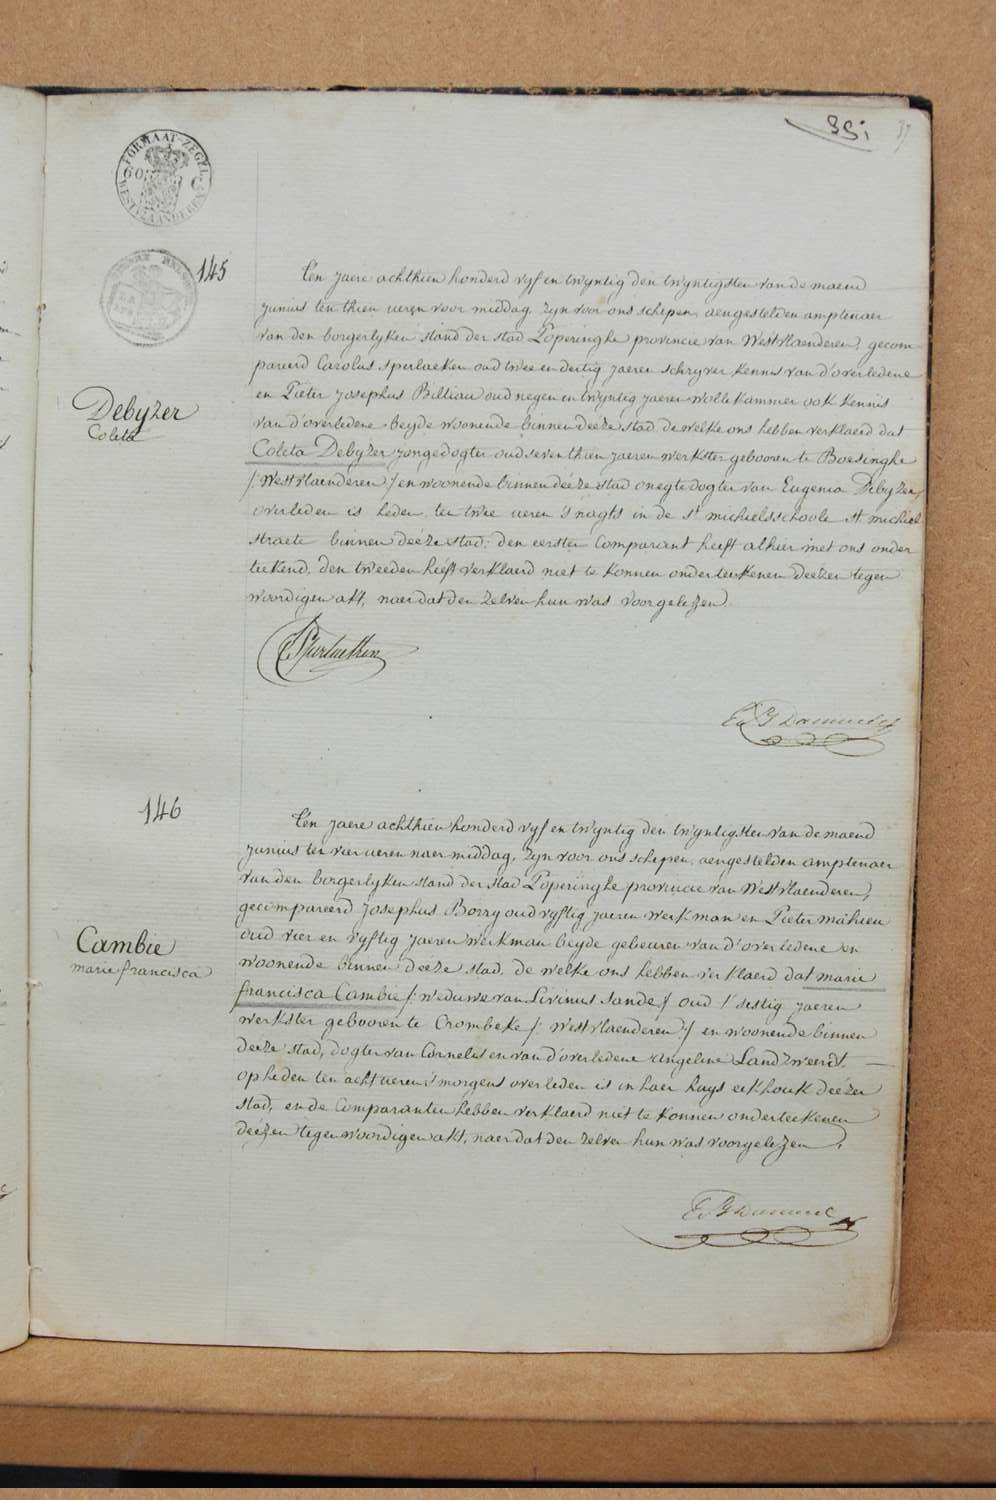 35.
37
FORMAAT-ZEGEL
60 C
WESTVLAANDEREN
145
Ten jaere achthien honderd vyf en twyntig den twyntigsten van de maend
junius ten thien ueren voor middag, zyn voor ons schepen, aengestelden amptenaer
van den borgerlyken stand der stad Poperinghe provincie van Westvlaenderen, gecom
pareerd Carolus Sperlaeken oud twee en dertig jaeren schryver kennis van d'overledene
en Pieter Josephus Billiau oud negen en twyntig jaeren wollekammer ook kennis
van d'overledene beyde woonende binnen deeze stad de welke ons hebben verklaerd dat
Debyzer
Coleta
Coleta Debyzer jongedogter oud seventhien jaeren werkster gebooren te Boesinghe
/: Westvlaenderen :/ en woonende binnen deéze stad onegte dogter van Eugenia Debyzer,
overleden is heden ten twee ueren 's nagts in de st michielsschoole st michiel
straete binnen deéze stad: den eersten Comparant heeft alhier met ons onder
teekend, den tweeden heeft verklaerd niet te konnen onderteekenen deézen tegen
woordigen akt, naer dat den zelven hun was voorgelezen.
146
Ten jaere achthien honderd vyf en twyntig den twyntigsten van de maend
junius ten vier ueren naer middag, zyn voor ons schepen, aengestelden amptenaer
van den borgerlyken stand der stad Poperinghe provincie van Westvlaenderen,
gecompareerd Josephus Borry oud vyftig jaeren werkman en Pieter mahieu
oud vier en vyftig jaeren werkman beyde gebeuren van d'overledene en
Cambie
marie francisca
woonende binnen deéze stad, de welke ons hebben verklaerd dat marie
francisca Cambie /: weduwe van Livinus Sande :/ oud t'sestig jaeren
werkster gebooren te Crombeke /: Westvlaenderen :/ en woonende binnen
deéze stad, dogter van Cornelis en van d'overledene Angeline Landzweerdt
op heden ten acht ueren 's morgens overleden is in haer huys eekhouk deézer
stad, en de Comparanten hebben verklaerd niet te konnen onderteekenen
deézen tegenwoordigen akt, naer dat den zelven hun was voorgelezen.